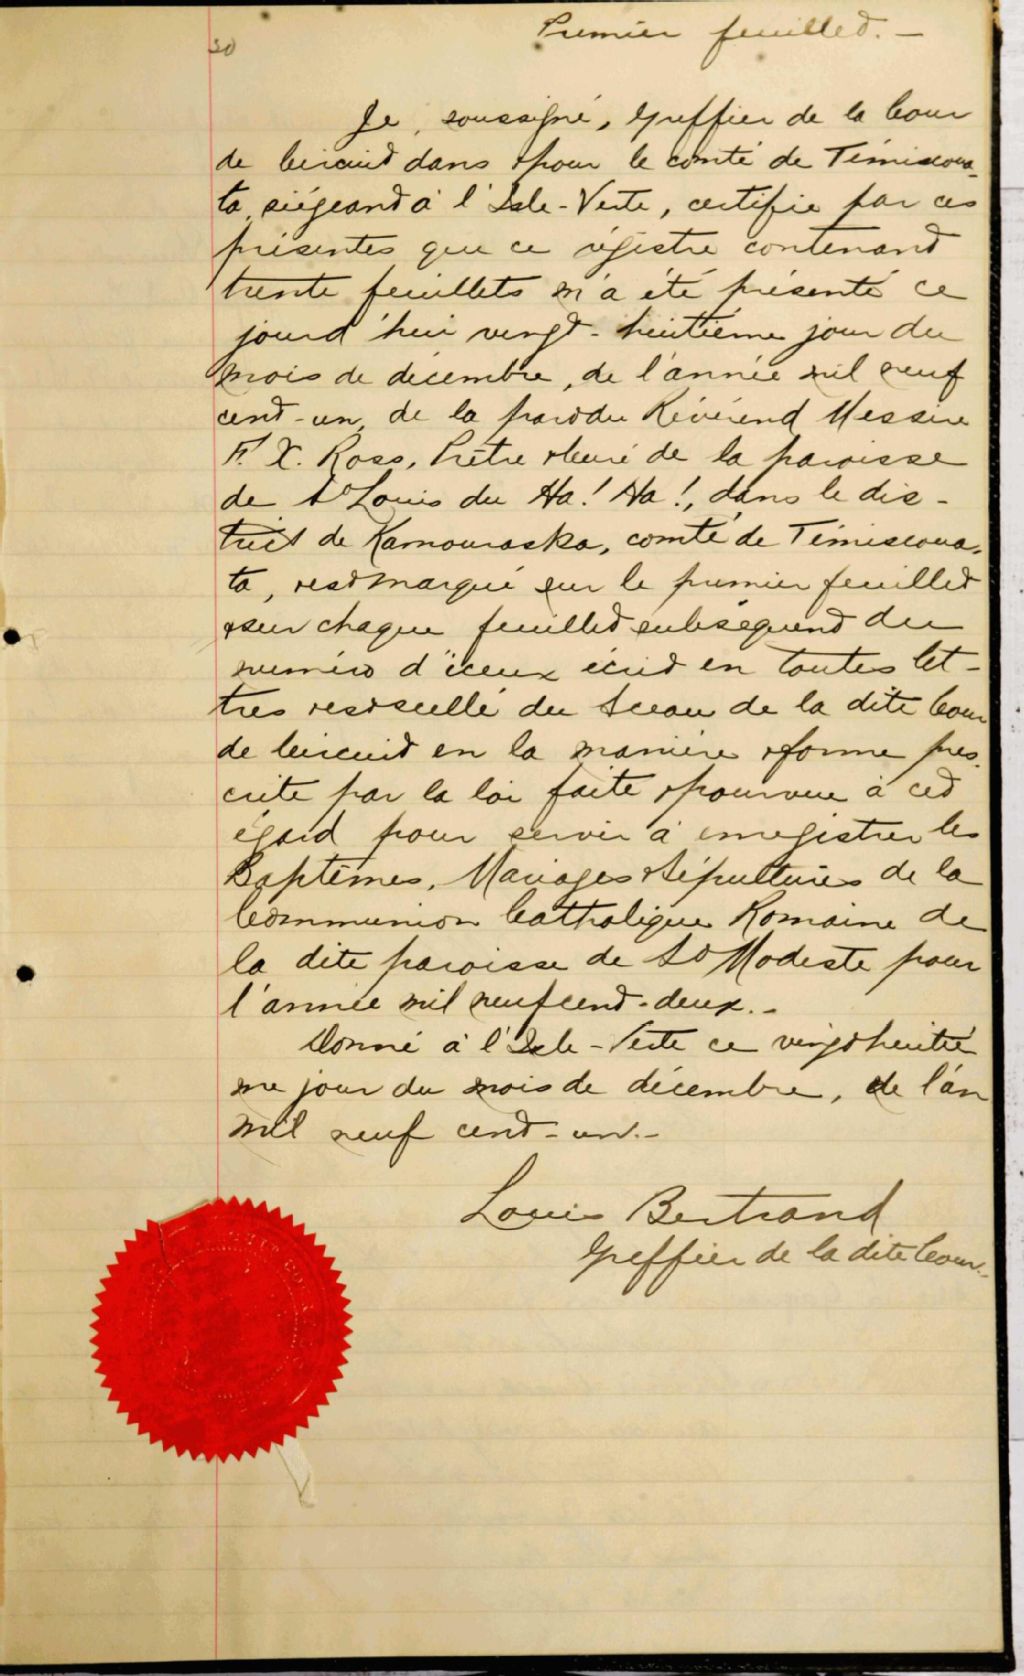 30
Premier feuillet. —
Je, soussigné, Greffier de la Cour
de Circuit dans & pour le comté de Témiscoua-
ta, siégeant à l'Isle-Verte, certifie par ces
présentes que ce régistre contenant
trente feuillets m'a été présenté ce
jourd'hui vingt-huitième jour du
mois de décembre, de l'année mil neuf
cent-un, de la part du Révérend Messire
F. X. Ross, Prêtre & Curé de la paroisse
de St Louis du Ha! Ha!, dans le dis-
trict de Kamouraska, comté de Témiscoua-
ta, & est marqué sur le premier feuillet
& sur chaque feuillet subséquent du
numéro d'iceux écrit en toutes let-
tres & est scellé du Sceau de la dite Cour
de Circuit en la manière & forme pres-
crite par la loi faite & pourvue à cet
égard pour servir à enregistrer les
Baptêmes, Mariages & Sépultures de la
Communion Catholique Romaine de
la dite paroisse de St Modeste pour
l'année mil neuf cent-deux. -
Donné à l'Isle-Verte ce vingt huitiè
me jour du mois de décembre, de l'an
mil neuf cent-un. -
Louis Bertrand
Greffier de la dite Cour. -